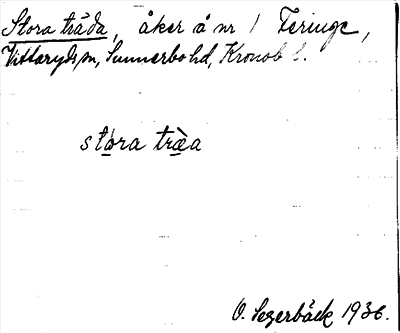 Stora träda, åker å nr 1 Feringe,
Vittaryds sn, Sunnerbo hd, Kronob l.
stora træa
O. Segerbäck 1936.